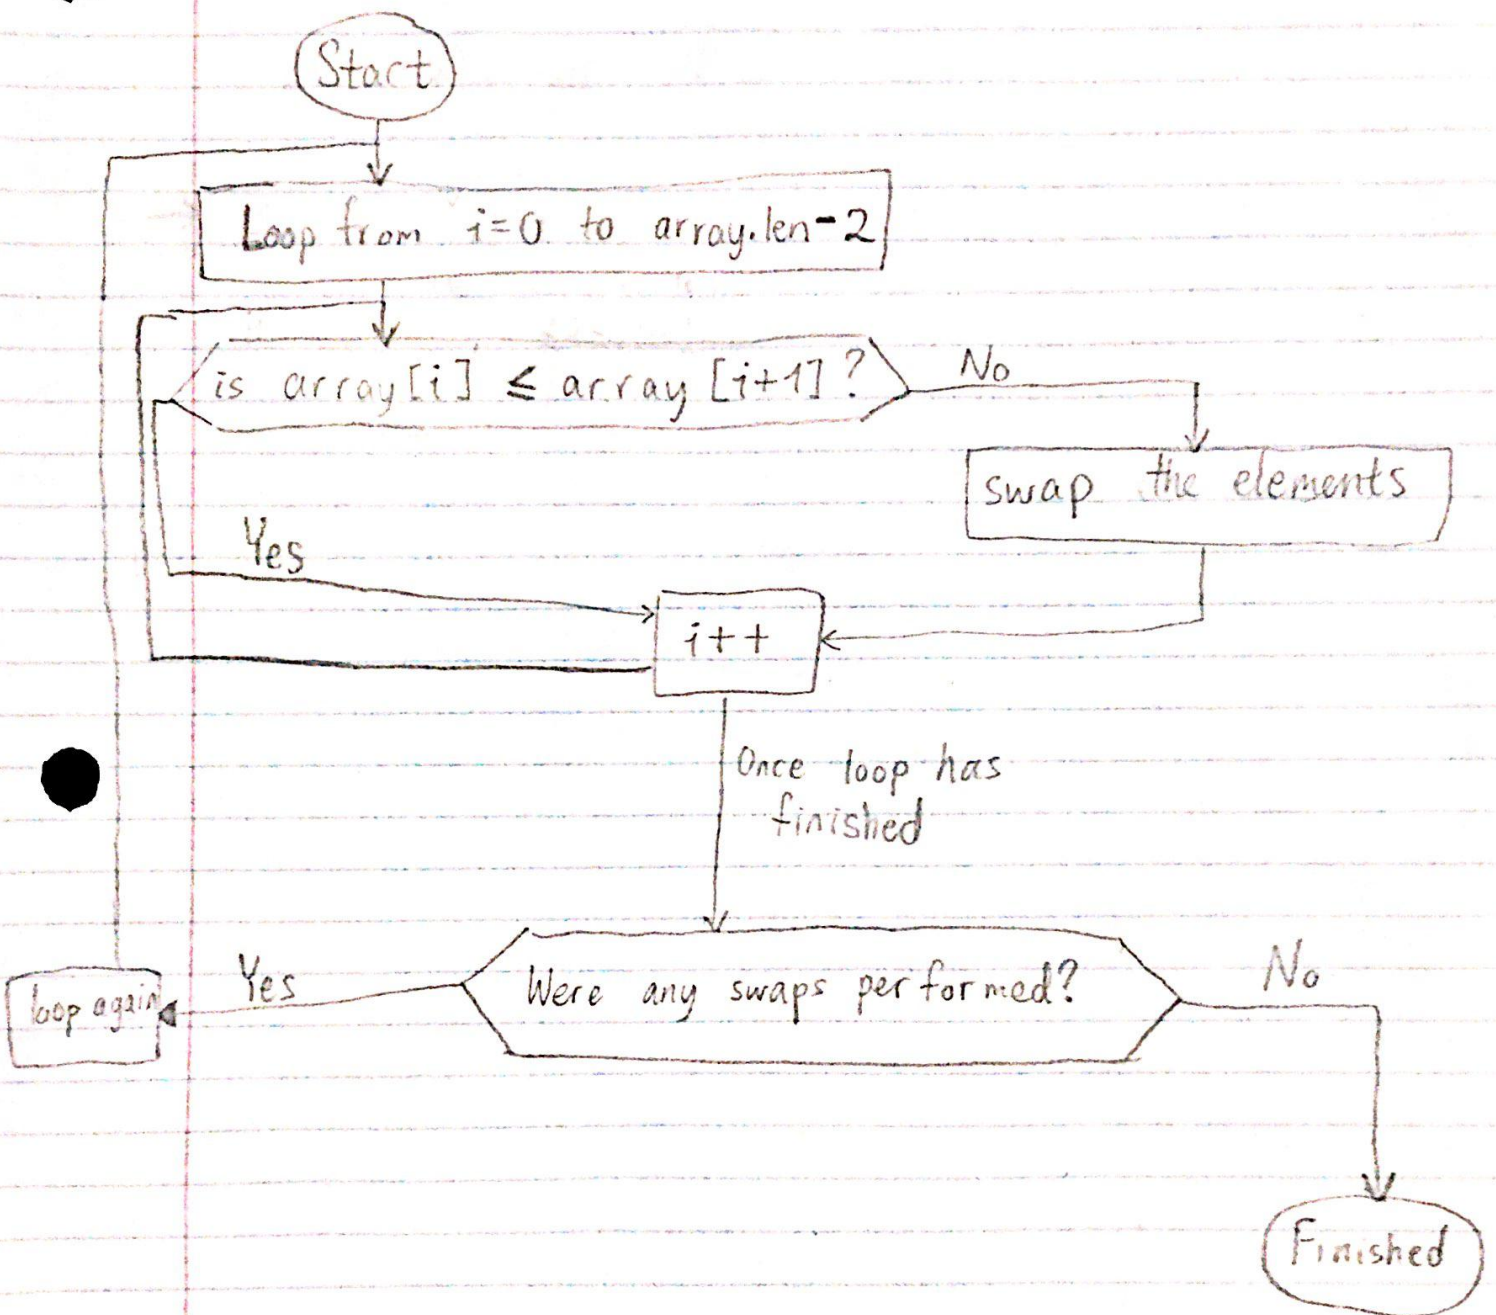 Start
Loop from i=0 to array.len-2
is array[i] ≤ array[i+1]?
No
swap the elements
Yes
i++
Once loop has
finished
Were any swaps performed?
Yes
No
loop again
Finished